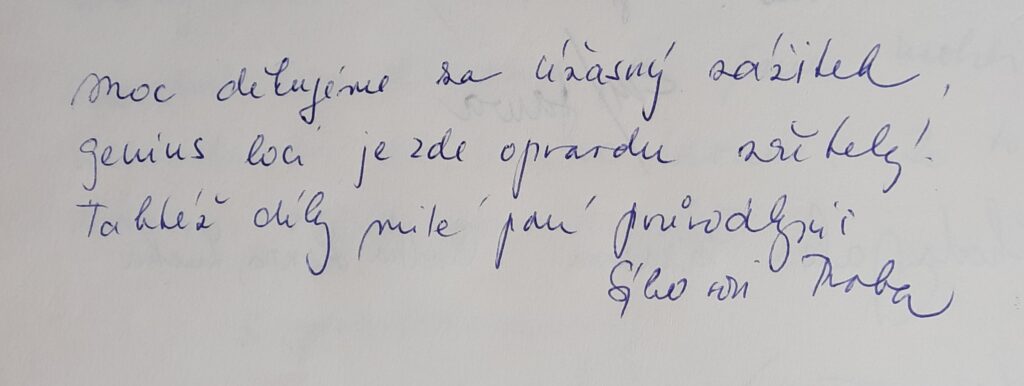 Moc děkujeme za úžasný zážitek,
genius loci je zde opravdu zřitelný!
Taktéž díky milé paní průvodkyni
Praha